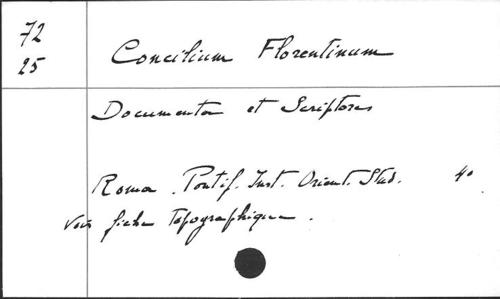 72
25
Concilium Florentinum
Documenta et Scriptores
Roma. Pontif. Inst. Orient. Stud. 4°
Voir fiche topographique.